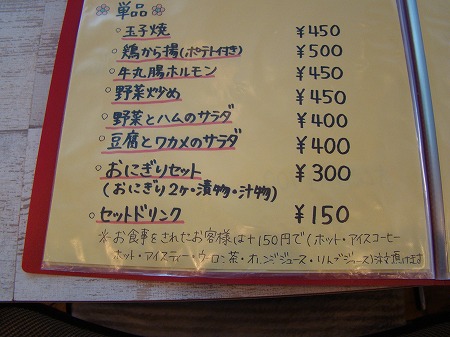 ❀単品❀
○玉子焼 ¥450
○鶏から揚(ポテト付き) ¥500
○牛丸腸ホルモン ¥450
○野菜炒め ¥450
○野菜とハムのサラダ ¥400
○豆腐とワカメのサラダ ¥400
○おにぎりセット ¥300
(おにぎり2ヶ・漬物・汁物)
○セットドリンク ¥150
※お食事をされたお客様は+150円で(ホット・アイスコーヒー
ホット・アイスティー・ウーロン茶・オレンジジュース・りんごジュース)注文頂けます